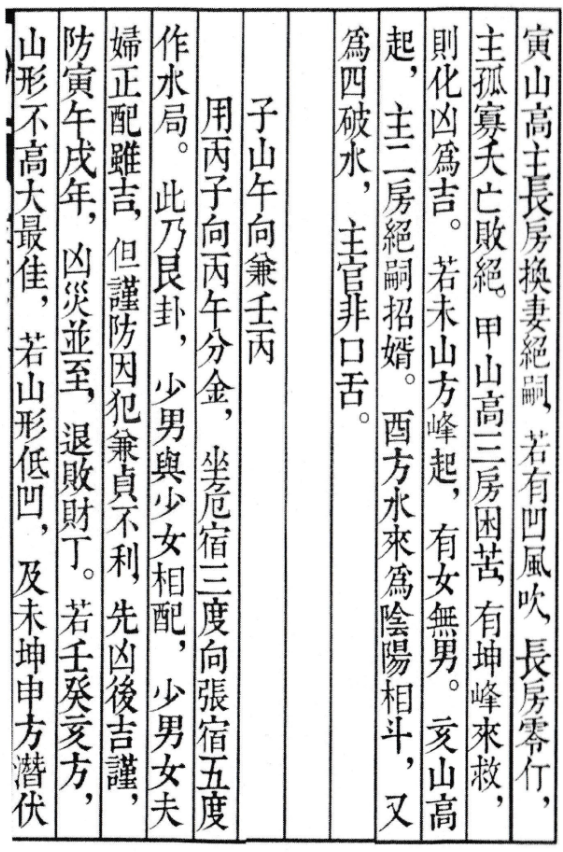 寅山高主長房換妻絕嗣，若有凹風吹，長房零仃，
主孤寡夭亡敗絕。甲山高三房困苦，有坤峰來救，
則化凶爲吉。若未山方峰起，有女無男。亥山高
起，主二房絕嗣招婿。酉方水來爲陰陽相斗，又
爲四破水，主官非口舌。
子山午向兼壬丙
用丙子向丙午分金，坐危宿三度向張宿五度
作水局。此乃艮卦，少男與少女相配，少男女夫
婦正配雖吉，但謹防因犯兼貞不利，先凶後吉謹，
防寅午戌年，凶災並至，退敗財丁。若壬癸亥方，
山形不高大最佳，若山形低凹，及未坤申方潛伏